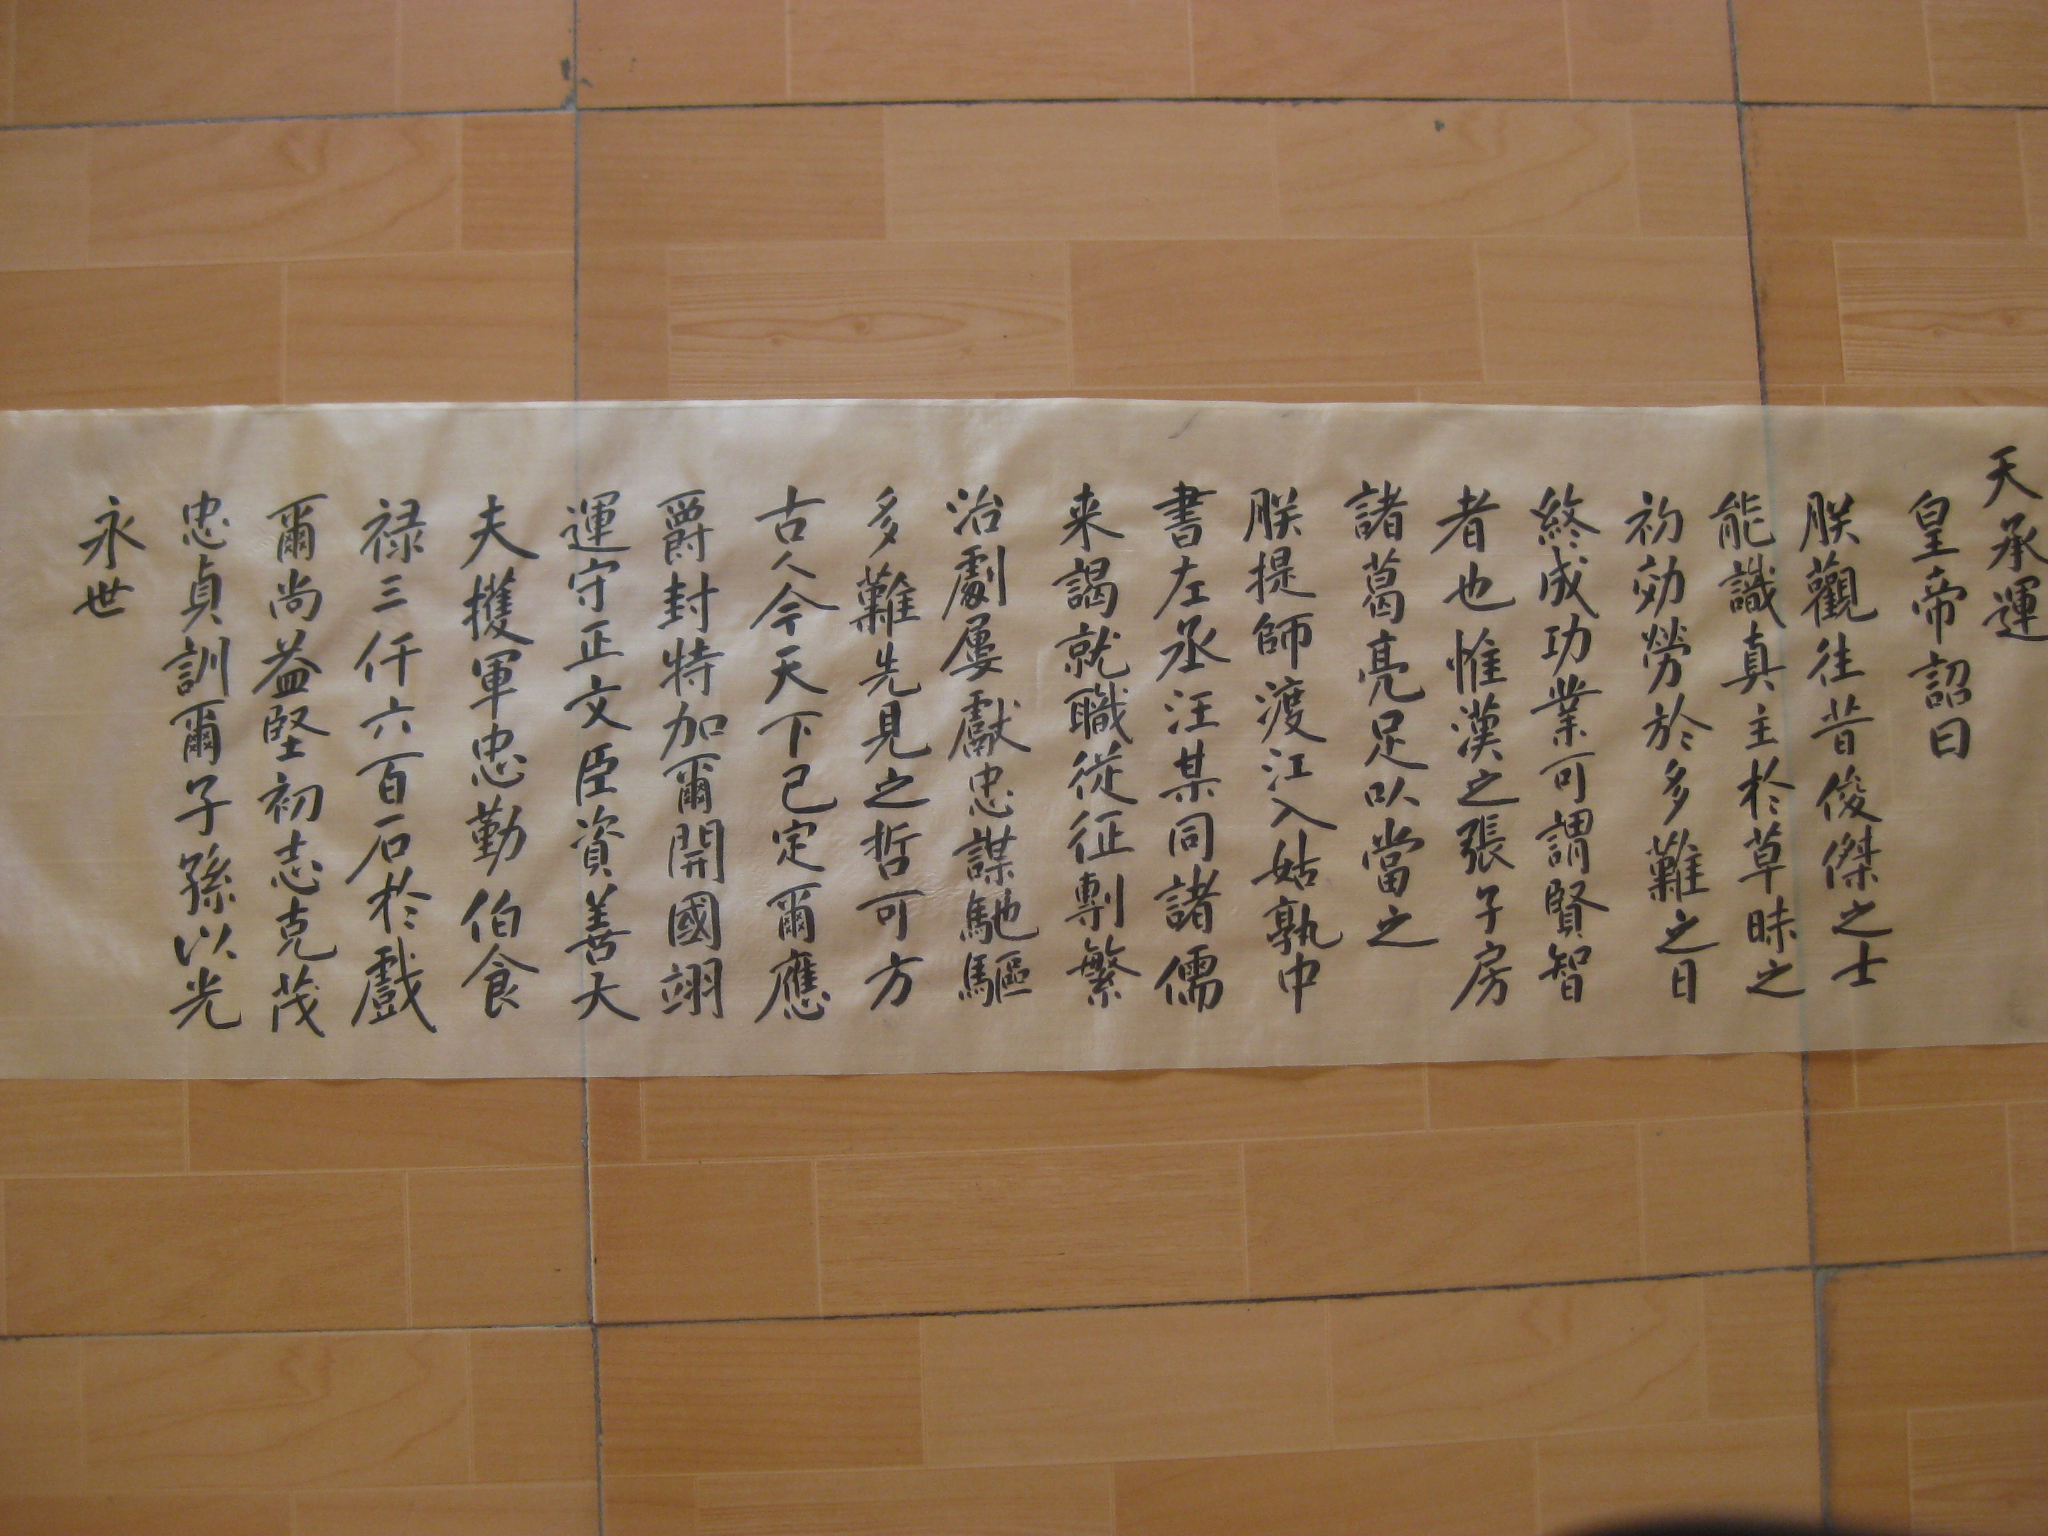 天承運
皇帝詔曰
朕觀往昔俊傑之士
能識真主於草昧之
初効勞於多難之日
終成功業可謂賢智
者也惟漢之張子房
諸葛亮足以當之
朕提師渡江入姑孰中
書左丞汪某同諸儒
来謁就職從征剸繁
治劇屢獻忠謀馳驅
多難先見之哲可方
古人今天下已定爾應
爵封特加爾開國翊
運守正文臣資善大
夫擭軍忠勤伯食
禄三仟六百石於戲
爾尚益堅初志克茂
忠貞訓爾子孫以光
永世